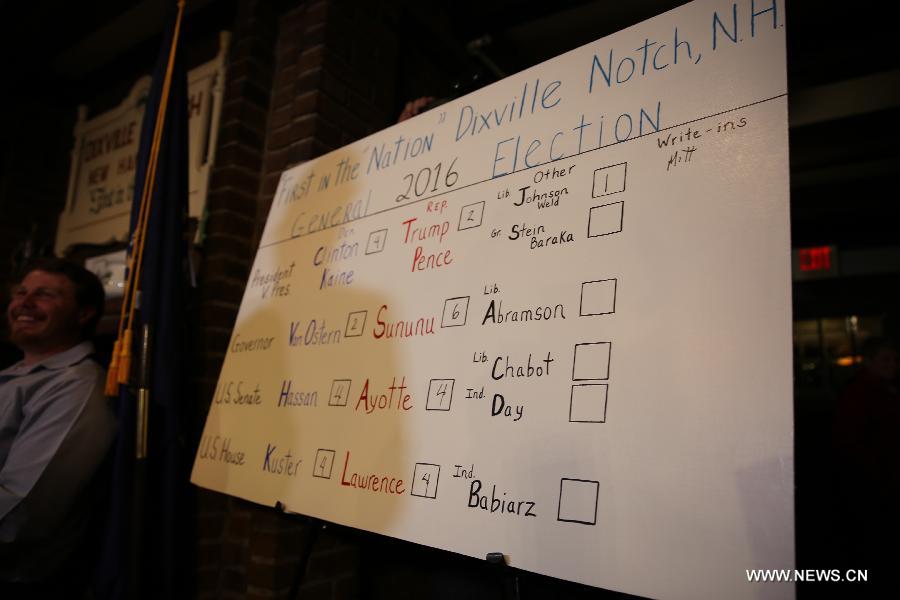 DIXVILLE
NEW HA
First in the "Nation" Dixville Notch, N.H.
General 2016 Election
Write-ins
Mitt
President
V. Pres.
Dem.
Clinton 4
Kaine
Rep.
Trump 2
Pence
Other
Lib. Johnson 1
Weld
Gr. Stein
Baraka
Governor Van Ostern 2 Sununu 6 Lib. Abramson
U.S. Senate Hassan 4 Ayotte 4 Lib. Chabot
Ind. Day
U.S. House Kuster 4 Lawrence 4 Ind. Babiarz
WWW.NEWS.CN